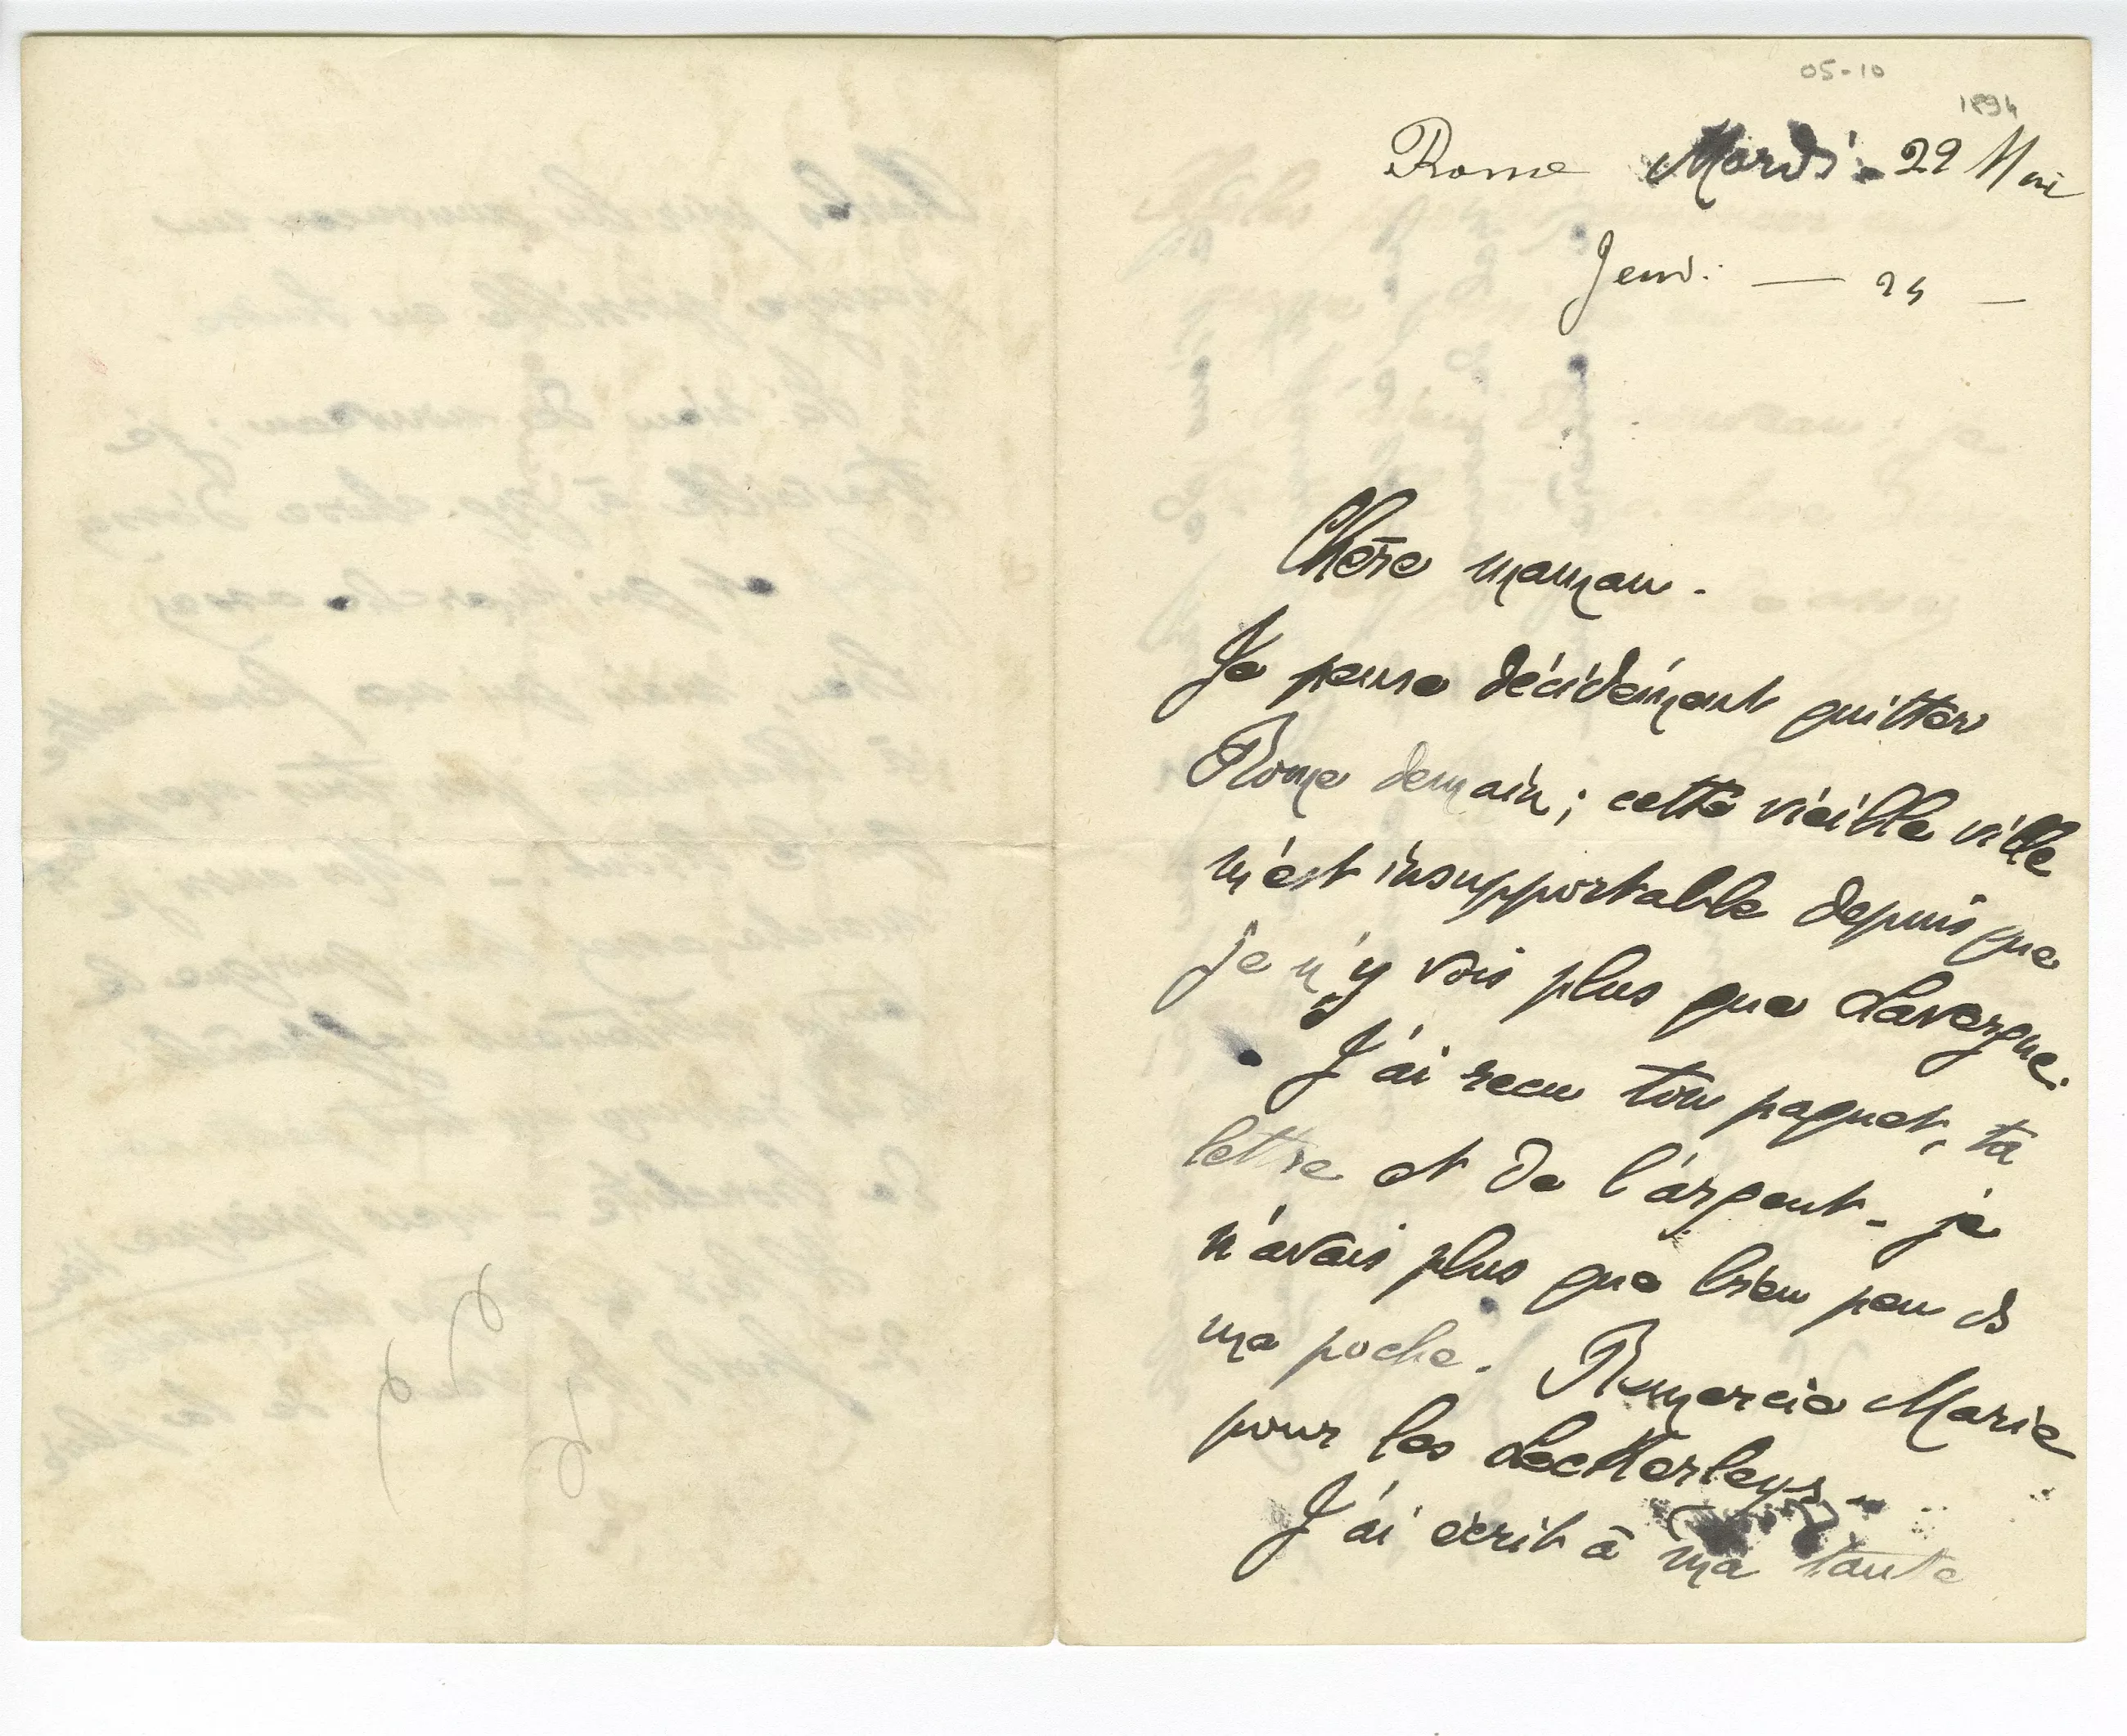 05-10
1894
Rome Mardi - 22 Mai
Jeudi — 24 —
Chère maman.
Je pense décidément quitter
Rome demain; cette vieille ville
m'est insupportable depuis que
je n'y vois plus que Lavergne.
J'ai recu ton paquet, ta
lettre et de l'argent - je
n'avais plus que bien peu ds
ma poche. Remercie Marie
pour les
J'ai écrit à ma tante